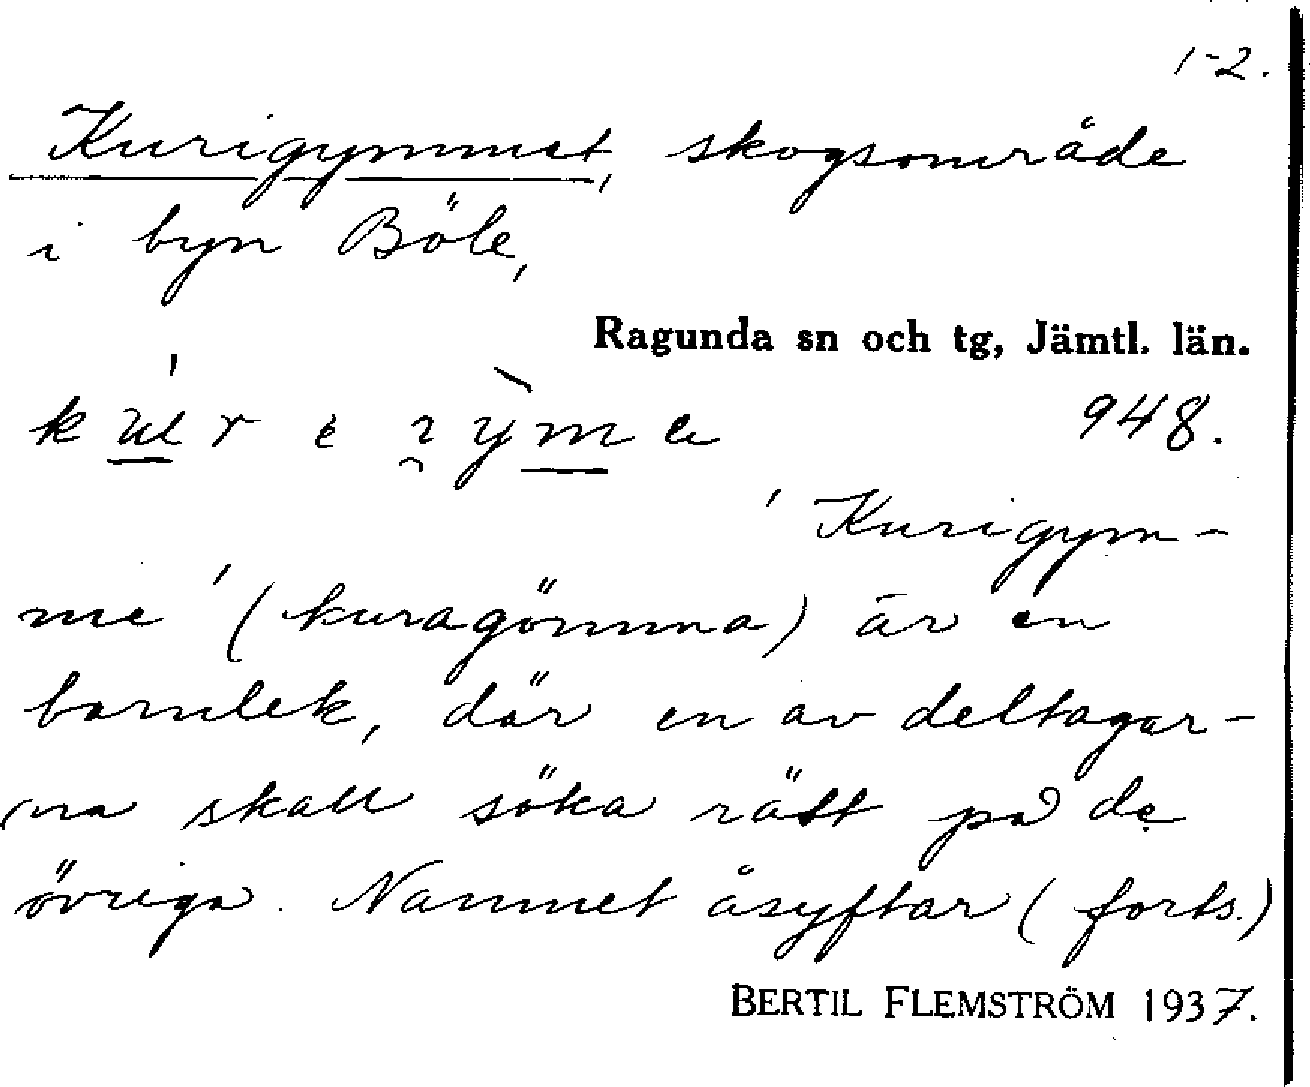 1-2.
Kurigymmet, skogsområde
i byn Böle,
Ragunda sn och tg, Jämtl. län.
948.
'Kurigym-
me' (kuragömma) är en
barnlek, där en av deltagar-
na skall söka rätt på de
övriga. Namnet åsyftar (forts.)
BERTIL FLEMSTRÖM 1937.